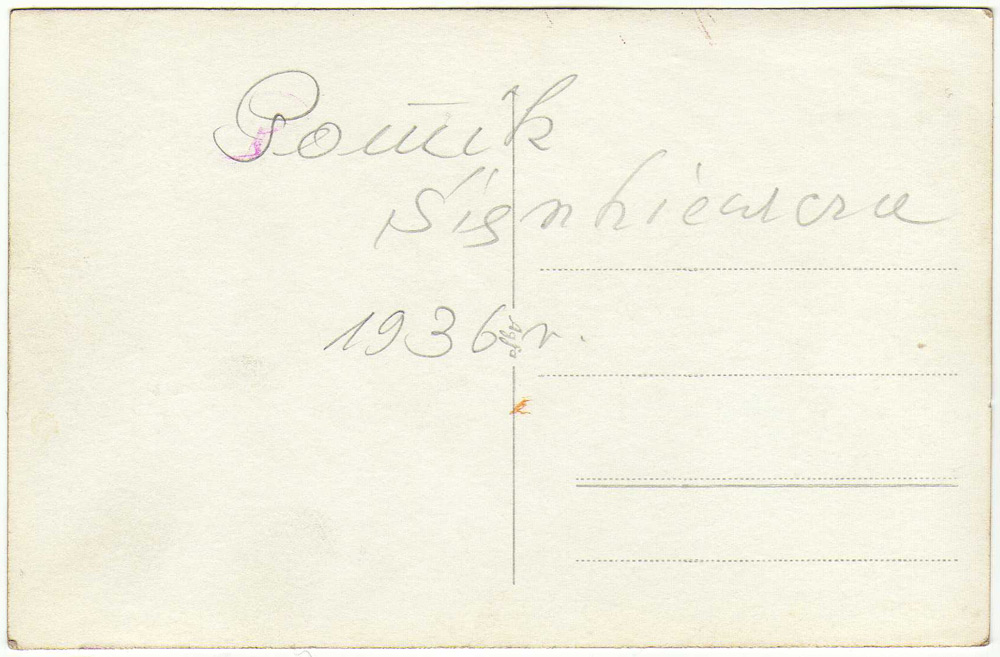 Pomnik
Sięnkiewicza
1936 r.
Agfa